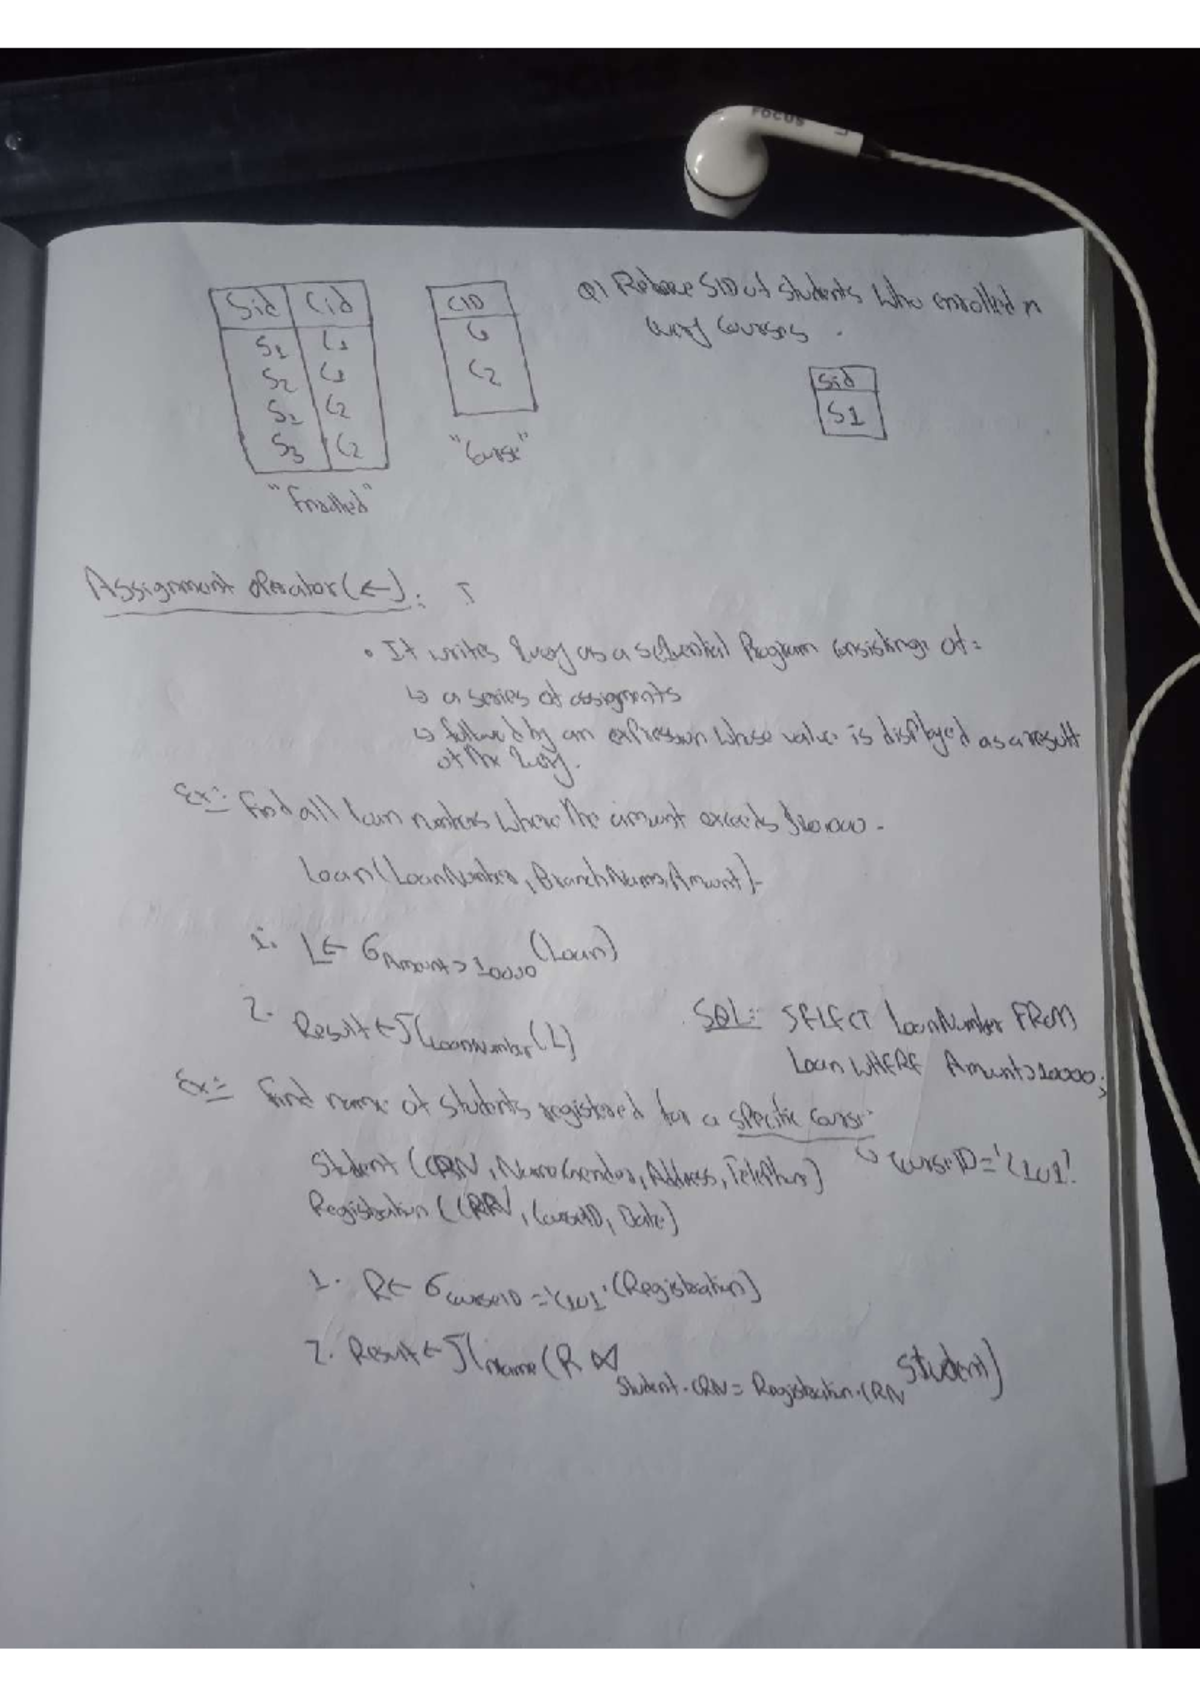 FOCUS
Sid Cid
S1 C1
S2 C1
S1 C2
S3 C2
"Enrolled"
CID
C1
C2
"Course"
Q1 Retrieve SID of students who enrolled in
every courses.
Sid
S1
Assignment operator(←):
• It writes query as a sequential Program consisting of:
↳ a series of assigments
↳ followed by an expression whose value is displayed as a result
of the query.
Ex:- Find all loan numbers where the amount exceeds $10,000.
Loan(LoanNumber, BranchName, Amount)
1. L← σ Amount>10000 (Loan)
2. Result ← π LoanNumber (L)
SQL:- SELECT LoanNumber FROM
Loan WHERE Amount>10000;
Ex:- find name of students registered for a specific course
↳ CourseID='C101'.
Student (CRN, Name, Gender, Address, Telephone)
Registration (CRN, CourseID, Date)
1. R← σ CourseID='C101' (Registration)
2. Result ← π name (R ⋈ Student.CRN = Registration.CRN Student)